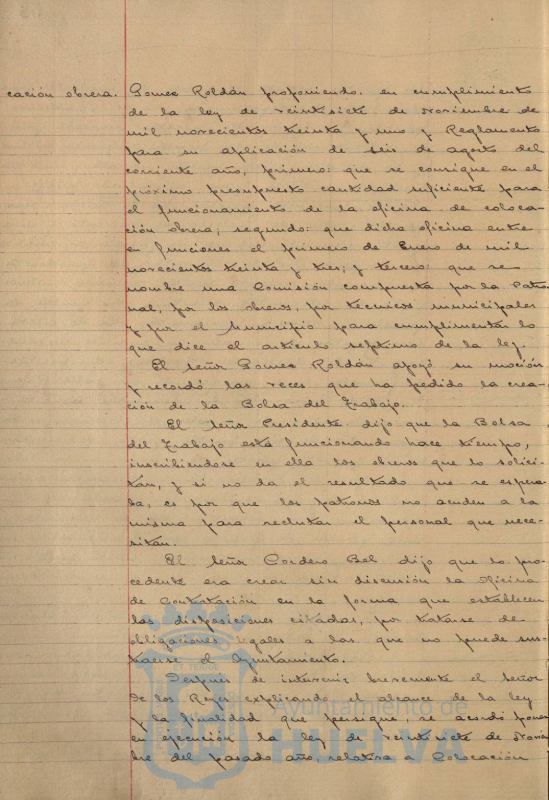 cación obrera.
Gomez Roldán proponiendo: en cumplimiento
de la ley de veintisiete de Noviembre de
mil novecientos treinta y uno y Reglamento
para su aplicación de seis de agosto del
corriente año, primero: que se consigne en el
próximo presupuesto cantidad suficiente para
el funcionamiento de la oficina de coloca-
ción obrera; segundo: que dicha oficina entre
en funciones el primero de Enero de mil
novecientos treinta y tres; y tercero: que se
nombre una Comisión compuesta por la Patro-
nal, por los obreros, por técnicos municipales
y por el Municipio para cumplimentar lo
que dice el artículo septimo de la ley.
El señor Gomez Roldán apoyó su moción
y recordó las veces que ha pedido la crea-
ción de la Bolsa del Trabajo.
El señor Presidente dijo que la Bolsa
del Trabajo está funcionando hace tiempo,
inscribiendose en ella los obreros que lo solici-
tan, y si no da el resultado que se espera-
ba, es por que los patronos no acuden a la
misma para reclutar el personal que nece-
sitan.
El señor Cordero Bel dijo que lo pro-
cedente era crear sin discusión la oficina
de Contratación en la forma que establecen
las disposiciones citadas, por tratarse de
obligaciones legales a las que no puede sus-
traerse el Ayuntamiento.
Después de intervenir brevemente el señor
de los Reyes explicando el alcance de la ley
y la finalidad que persigue, se acordó poner
en ejecución la ley de veintisiete de Noviem-
bre del pasado año, relativa a Colocación
Ayuntamiento de
HUELVA